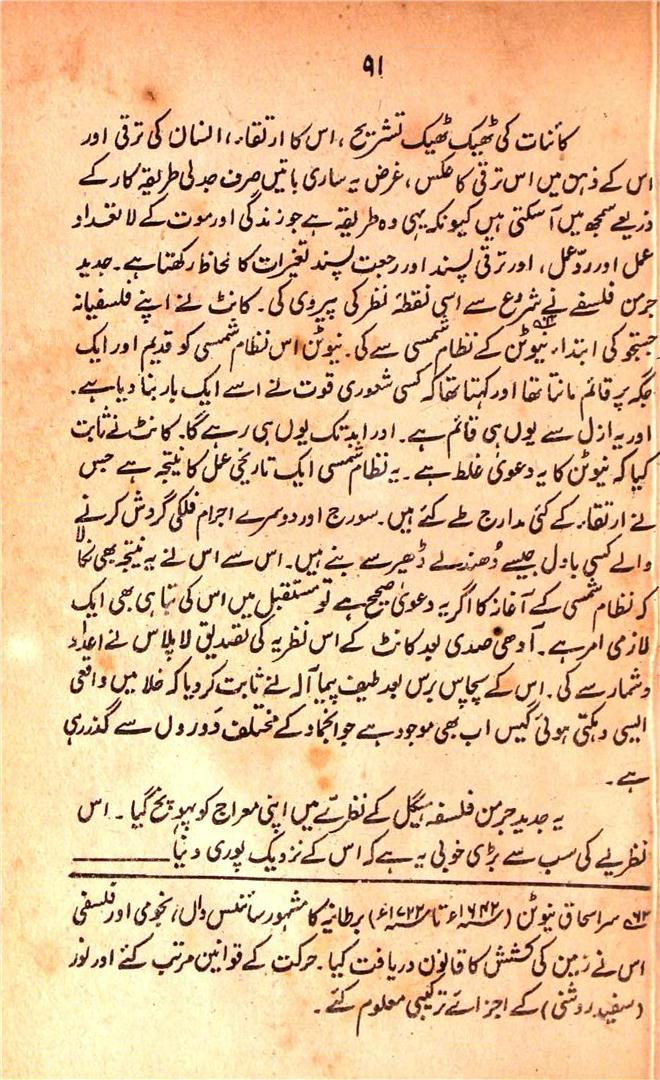 ۹۱
کائنات کی ٹھیک ٹھیک تشریح، اس کا ارتقاء، انسان کی ترقی اور
اس کے ذہن میں اس ترقی کا عکس، غرض یہ ساری باتیں صرف جدلی طریقہ کار کے
ذریعے سمجھ میں آ سکتی ہیں کیونکہ یہی وہ طریقہ ہے جو زندگی اور موت کے لاتعداد
عمل اور ردّعمل، اور ترقی پسند اور رجعت پسند تغیرات کا لحاظ رکھتا ہے۔ جدید
جرمن فلسفے نے شروع سے اسی نقطۂ نظر کی پیروی کی۔ کانٹ نے اپنے فلسفیانہ
جستجو کی ابتداء نیوٹن کے نظام شمسی سے کی۔ نیوٹن اس نظام شمسی کو قدیم اور ایک
جگہ پر قائم مانتا تھا اور کہتا تھا کہ کسی شعوری قوت نے اسے ایک بار بنا دیا ہے۔
اور یہ ازل سے یوں ہی قائم ہے۔ اور ابد تک یوں ہی رہے گا۔ کانٹ نے ثابت
کیا کہ نیوٹن کا یہ دعویٰ غلط ہے۔ یہ نظام شمسی ایک تاریخی عمل کا نتیجہ ہے جس
نے ارتقاء کے کئی مدارج طے کئے ہیں۔ سورج اور دوسرے اجرام فلکی گردش کرنے
والے کسی بادل جیسے دُھندلے ڈھیر سے بنے ہیں۔ اس سے اس نے یہ نتیجہ بھی نکالا
کہ نظام شمسی کے آغاز کا اگر یہ دعویٰ صحیح ہے تو مستقبل میں اس کی تباہی بھی ایک
لازمی امر ہے۔ آدھی صدی بعد کانٹ کے اس نظریہ کی تصدیق لاپلاس نے اعداد
و شمار سے کی۔ اس کے پچاس برس بعد طیف پیما آلہ نے ثابت کر دیا کہ خلا میں واقعی
ایسی دہکتی ہوئی گیس اب بھی موجود ہے جو انجماد کے مختلف دَوروں سے گذر رہی
ہے۔
یہ جدید جرمن فلسفہ ہیگل کے نظریّے میں اپنی معراج کو پہونچ گیا۔ اس
نظریے کی سب سے بڑی خوبی یہ ہے کہ اس کے نزدیک پوری دنیا
۶۲ سر اسحاق نیوٹن (۱۶۴۲ء تا ۱۷۲۲ء) برطانیہ کا مشہور سائنس داں، نجومی اور فلسفی
اس نے زمین کی کشش کا قانون دریافت کیا۔ حرکت کے قوانین مرتب کئے اور نور
(سفید روشنی) کے اجزائے ترکیبی معلوم کئے۔